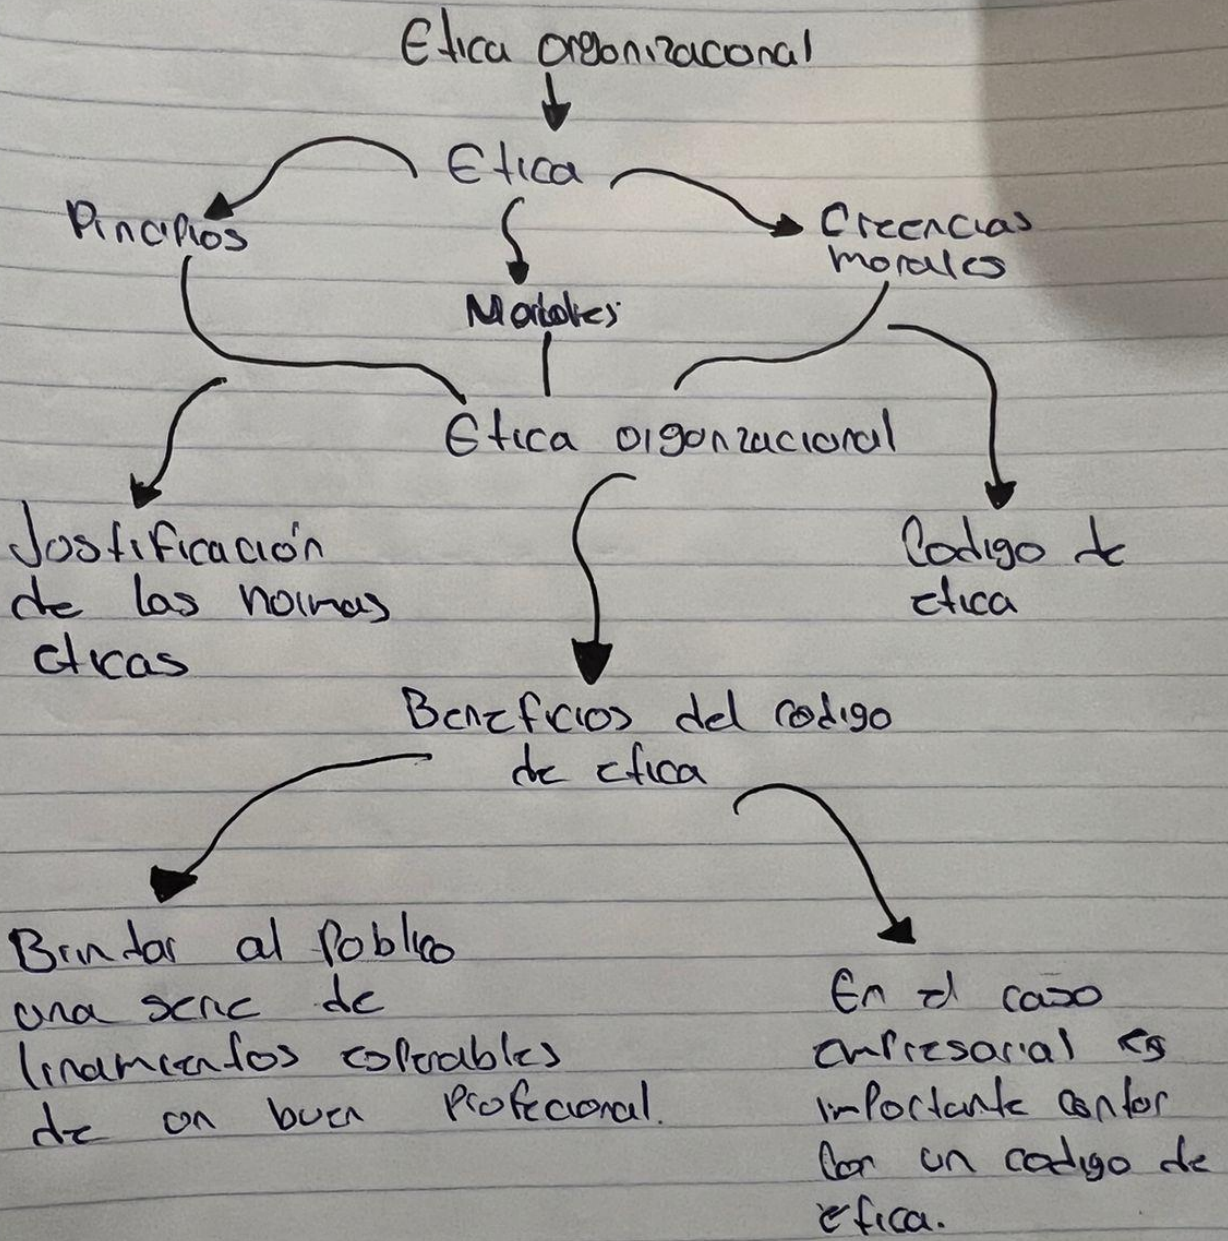 Etica organizaconal
Etica
Pincipios
Creencias
morales
Etica organzacional
Jostificación
de las normas
eticas
Codigo de
etica
Beneficios del codigo
de etica
Brindar al Poblico
una serie de
linamientos esperables
de un buen Profecional.
En el caso
empresarial es
importante contar
Con un codigo de
etica.